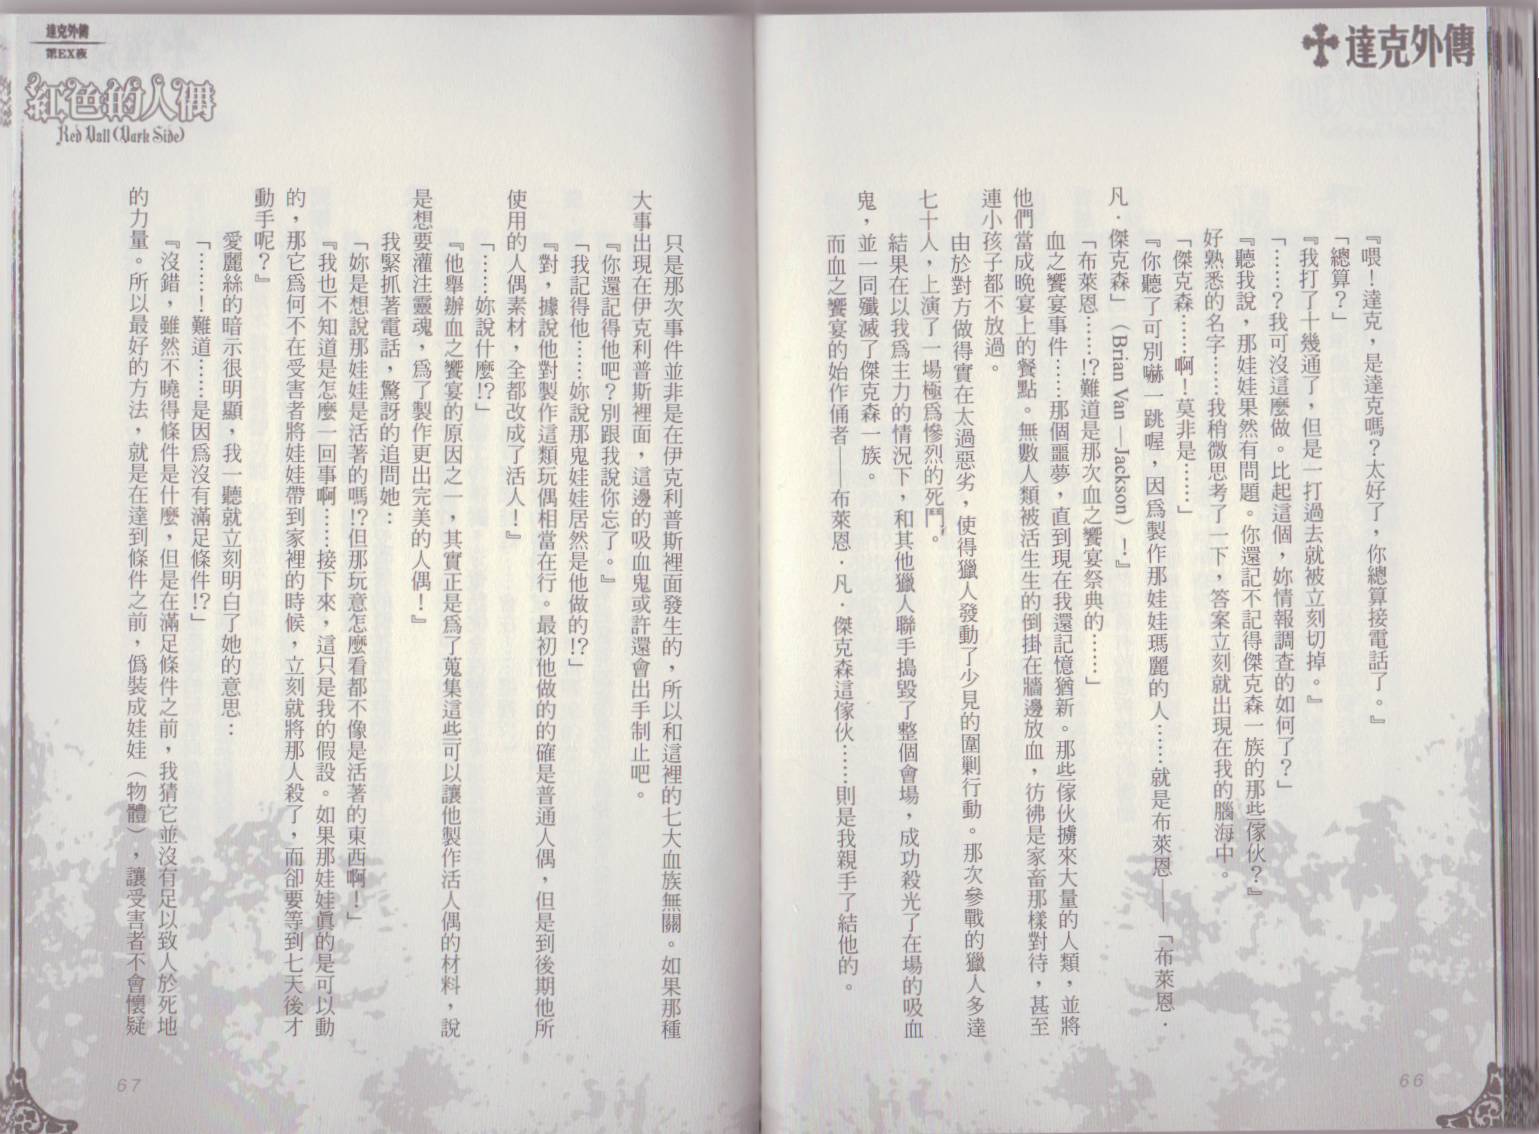 達克外傳
『喂！達克，是達克嗎？太好了，你總算接電話了。』
「總算？」
『我打了十幾通了，但是一打過去就被立刻切掉。』
「……？我可沒這麼做。比起這個，妳情報調查的如何了？」
『聽我說，那娃娃果然有問題。你還記不記得傑克森一族的那些傢伙？』
好熟悉的名字……我稍微思考了一下，答案立刻就出現在我的腦海中。
「傑克森……啊！莫非是……」
『你聽了可別嚇一跳喔，因為製作那娃娃瑪麗的人……就是布萊恩——「布萊恩．
凡．傑克森」（Brian Van —Jackson）！』
「布萊恩……!?難道是那次血之饗宴祭典的……」
血之饗宴事件……那個噩夢，直到現在我還記憶猶新。那些傢伙擄來大量的人類，並將
他們當成晚宴上的餐點。無數人類被活生生的倒掛在牆邊放血，彷彿是家畜那樣對待，甚至
連小孩子都不放過。
由於對方做得實在太過惡劣，使得獵人發動了少見的圍剿行動。那次參戰的獵人多達
七十人，上演了一場極為慘烈的死鬥。
結果在以我為主力的情況下，和其他獵人聯手搗毀了整個會場，成功殺光了在場的吸血
鬼，並一同殲滅了傑克森一族。
而血之饗宴的始作俑者——布萊恩．凡．傑克森這傢伙……則是我親手了結他的。
66
達克外傳
第EX夜
紅色的人偶
Red Doll(Dark Side)
只是那次事件並非是在伊克利普斯裡面發生的，所以和這裡的七大血族無關。如果那種
大事出現在伊克利普斯裡面，這邊的吸血鬼或許還會出手制止吧。
『你還記得他吧？別跟我說你忘了。』
「我記得他……妳說那鬼娃娃居然是他做的!?」
『對，據說他對製作這類玩偶相當在行。最初他做的的確是普通人偶，但是到後期他所
使用的人偶素材，全都改成了活人！』
「……妳說什麼!?」
『他舉辦血之饗宴的原因之一，其實正是為了蒐集這些可以讓他製作活人偶的材料，說
是想要灌注靈魂，為了製作更出完美的人偶！』
我緊抓著電話，驚訝的追問她：
「妳是想說那娃娃是活著的嗎!?但那玩意怎麼看都不像是活著的東西啊！」
『我也不知道是怎麼一回事啊……接下來，這只是我的假設。如果那娃娃真的是可以動
的，那它為何不在受害者將娃娃帶到家裡的時候，立刻就將那人殺了，而卻要等到七天後才
動手呢？』
愛麗絲的暗示很明顯，我一聽就立刻明白了她的意思：
「……！難道……是因為沒有滿足條件!?」
『沒錯，雖然不曉得條件是什麼，但是在滿足條件之前，我猜它並沒有足以致人於死地
的力量。所以最好的方法，就是在達到條件之前，偽裝成娃娃（物體），讓受害者不會懷疑
67